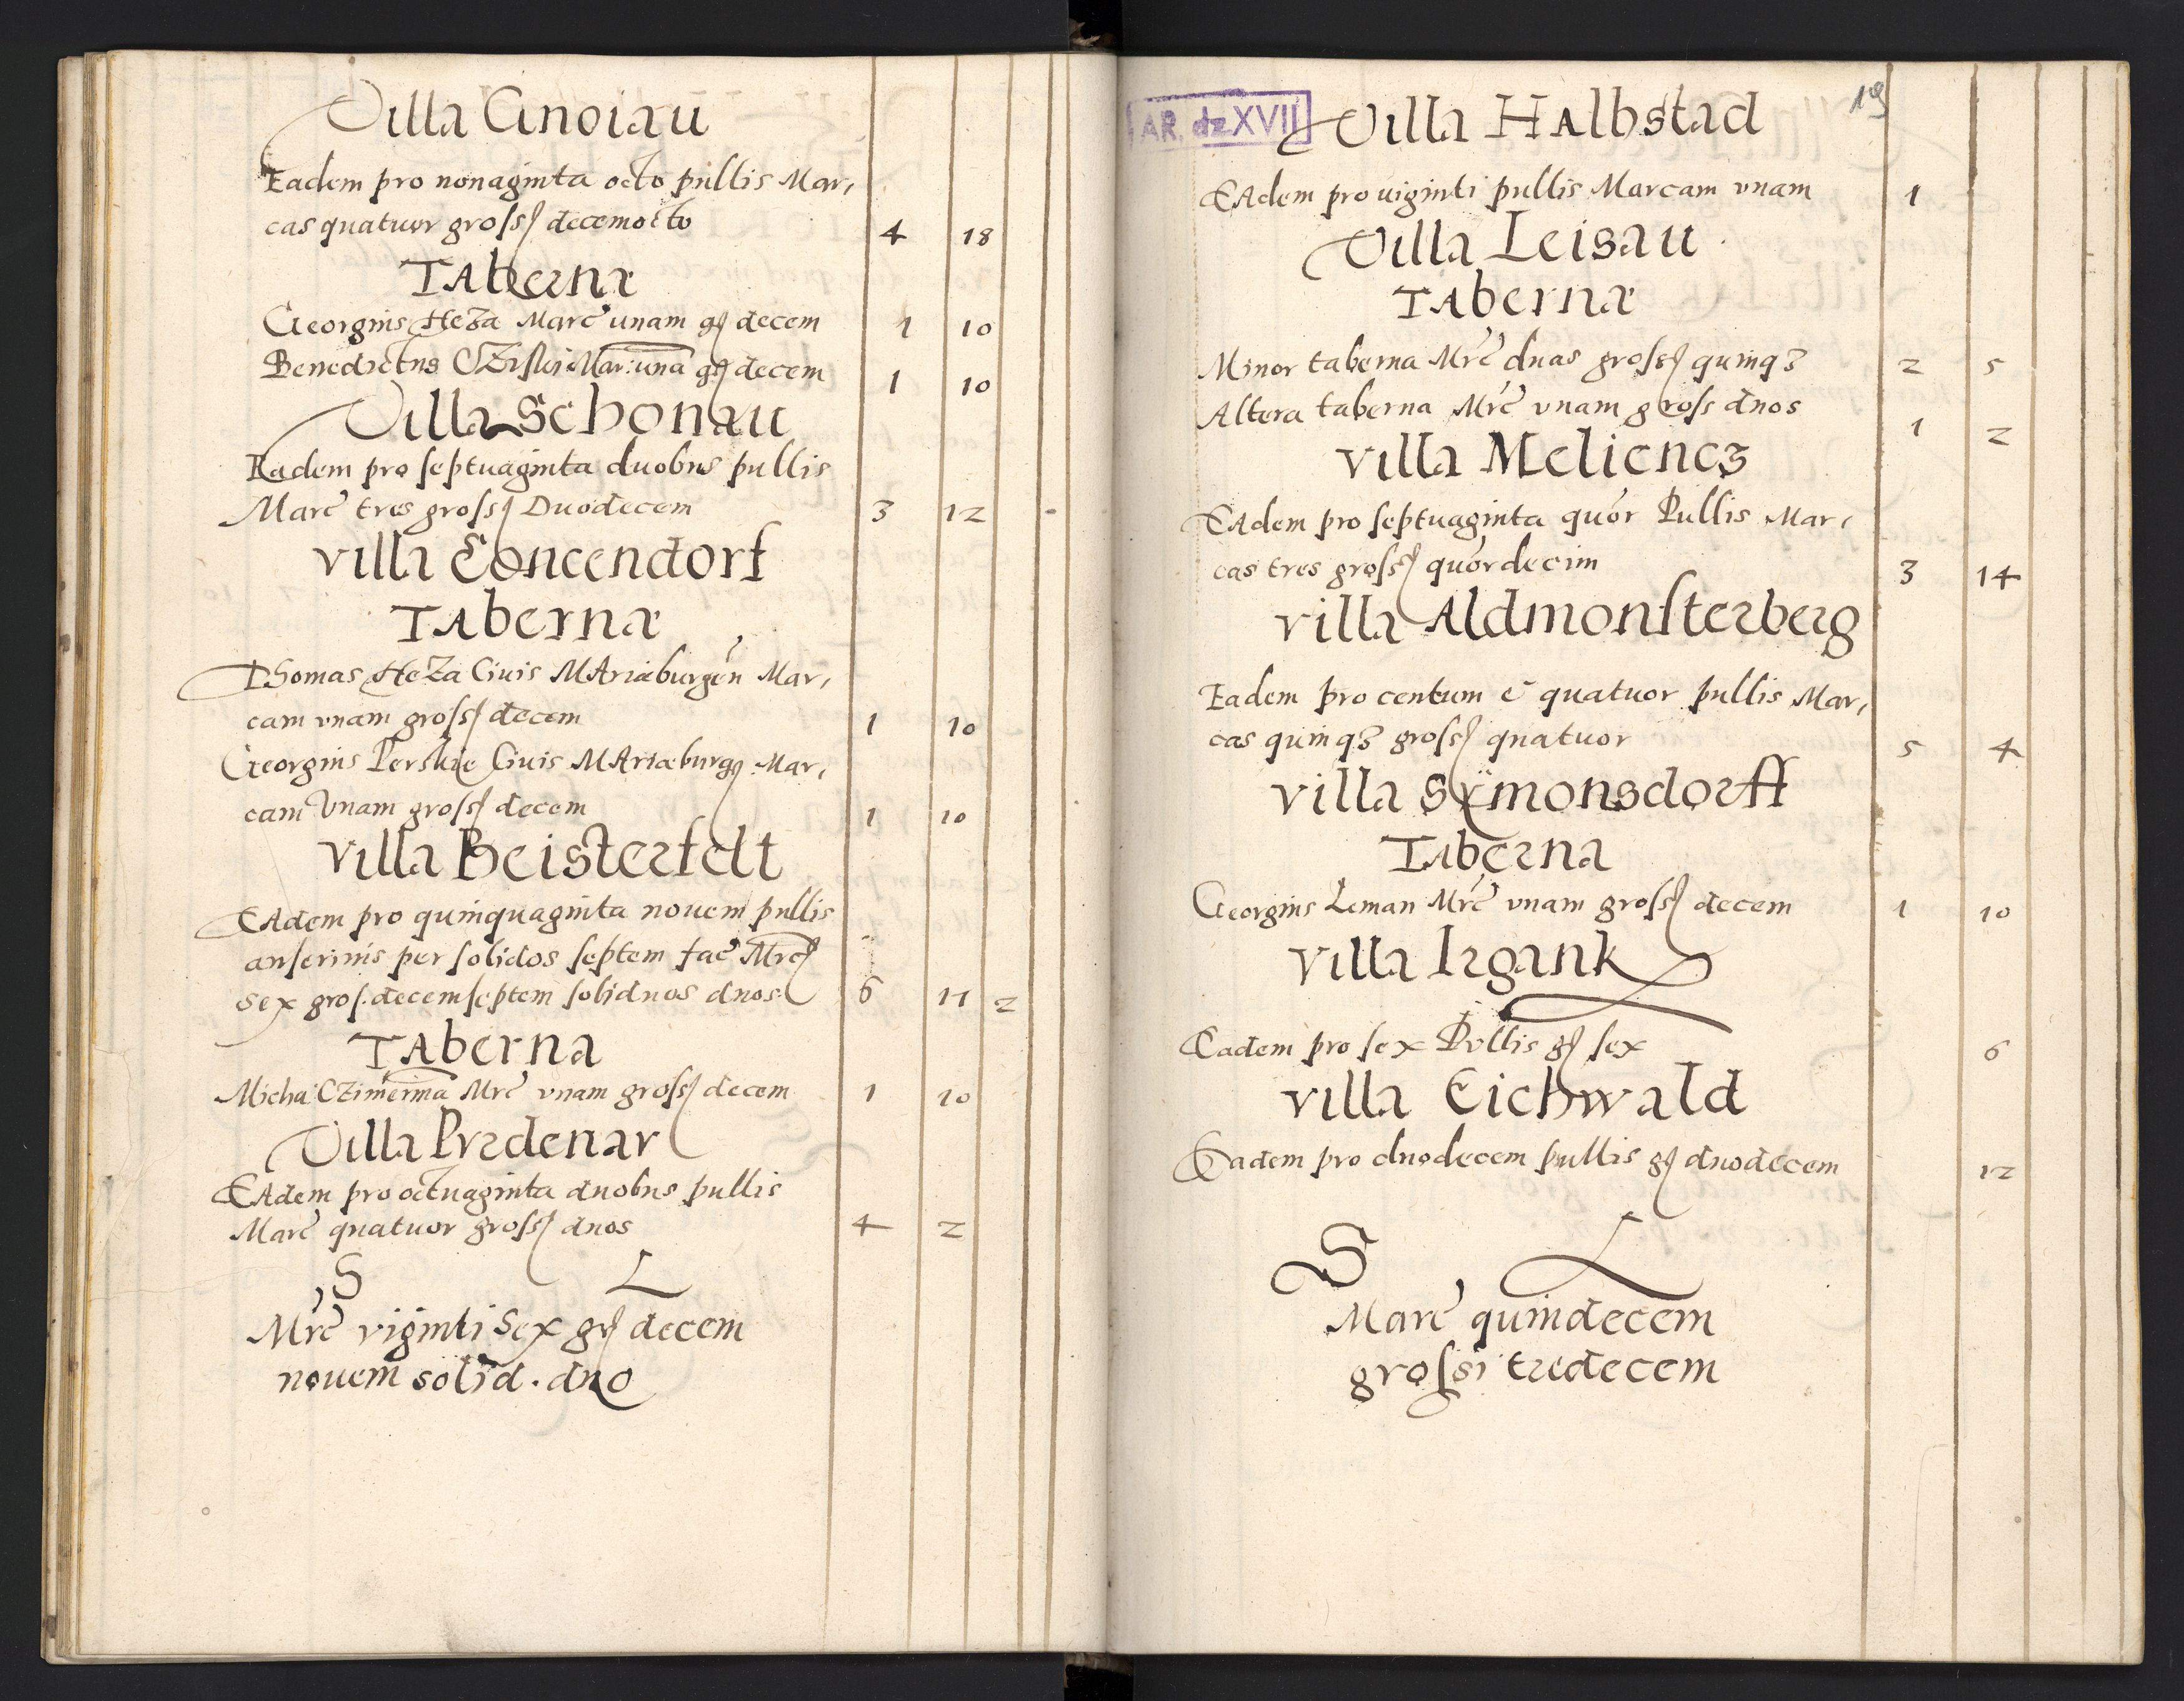 Villa Cnoiau
Eadem pro nonaginta octo pullis Mar,
cas quatuor gross decemocto 4 18
TAbernæ
Georgius HeZa Marc unam gr decem 1 10
Benedictus Mar: una gr decem 1 10
Villa Schonau
Eadem pro septuaginta duobus pullis
Marc tres gross Duodecem 3 12
villa Concendorf
TAbernæ
Thomas HeZa Ciuis MAriæburgen Mar,
cam vnam gross decem 1 10
Georgius Perskie Ciuis MAriæburg Mar,
cam Vnam gross decem 1 10
villa Beisterfelt
EAdem pro quinquaginta nouem pullis
anserinis per solidos septem fac Mrc
sex gros. decemseptem soliduos duos 6 17 2
TAberna
Micha CZimerma Mrc vnam gross decem 1 10
Villa Predenar
EAdem pro octuaginta duobus pullis
Marc quatuor gross duos 4 2
S L
Mrc viginti Sex gr decem
nouem solid. duo
19
AR. dz XVII
Villa HAlbstad
EAdem pro uiginti pullis Marcam vnam 1
Villa Leisau
TAbernæ
Minor taberna Mrc duas gross quinq3 2 5
Altera taberna Mrc vnam gross duos 1 2
villa Meliencz
EAdem pro septuaginta quor Pullis Mar,
cas tres gross quordecim 3 14
villa Aldmonsterberg
Eadem pro centum e quatuor pullis Mar,
cas quinq3 gross quatuor 5 4
villa Sÿmonsdorff
TAberna
Georgius Leman Mrc vnam gross decem 1 10
villa Irgank
Eadem pro sex Pullis gr sex 6
villa Eichwald
Eadem pro duodecem pullis gr duodecem 12
S L
Marc quindecem
grossi tredecem